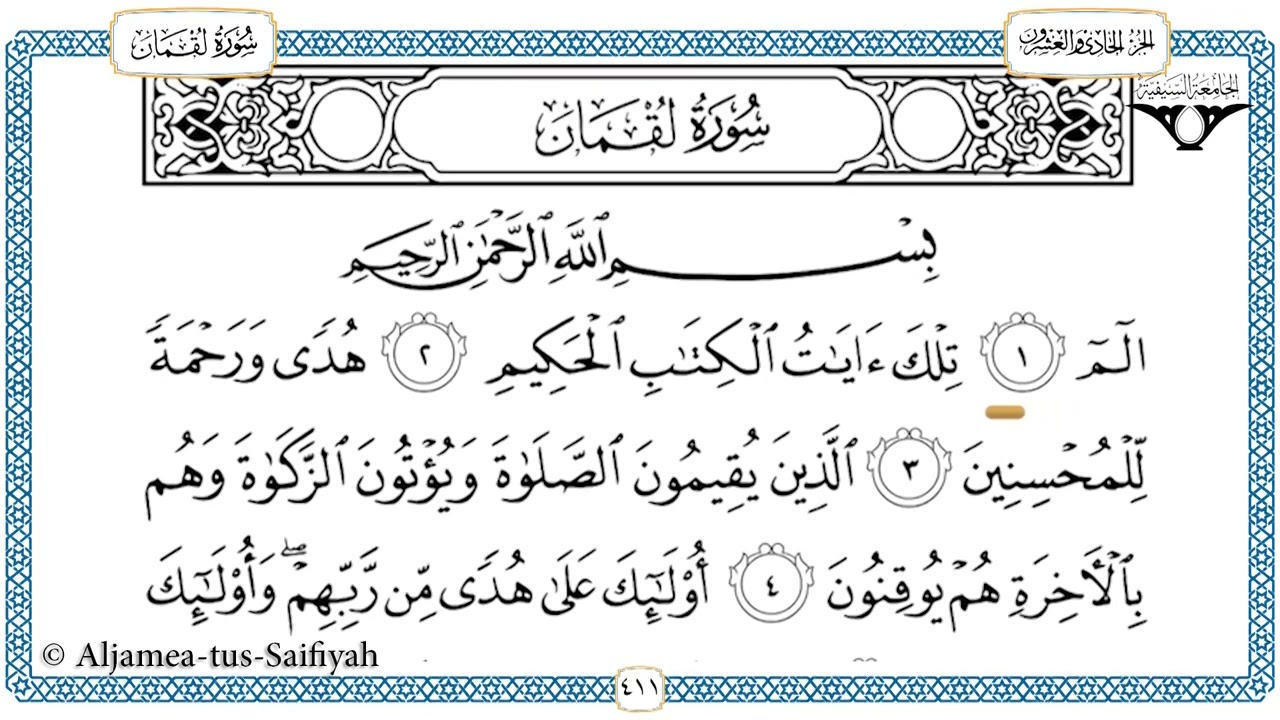 سُورَةُ لُقْمَانَ
الجزء الحادي والعشرون
الجامعة السيفية
سُورَةُ لُقْمَانَ
بِسْمِ ٱللَّهِ ٱلرَّحْمَٰنِ ٱلرَّحِيمِ
الٓمٓ ١ تِلْكَ ءَايَٰتُ ٱلْكِتَٰبِ ٱلْحَكِيمِ ٢ هُدًى وَرَحْمَةً
لِّلْمُحْسِنِينَ ٣ ٱلَّذِينَ يُقِيمُونَ ٱلصَّلَوٰةَ وَيُؤْتُونَ ٱلزَّكَوٰةَ وَهُم
بِٱلْأَخِرَةِ هُمْ يُوقِنُونَ ٤ أُو۟لَٰٓئِكَ عَلَىٰ هُدًى مِّن رَّبِّهِمْ ۖ وَأُو۟لَٰٓئِكَ
© Aljamea-tus-Saifiyah
٤١١